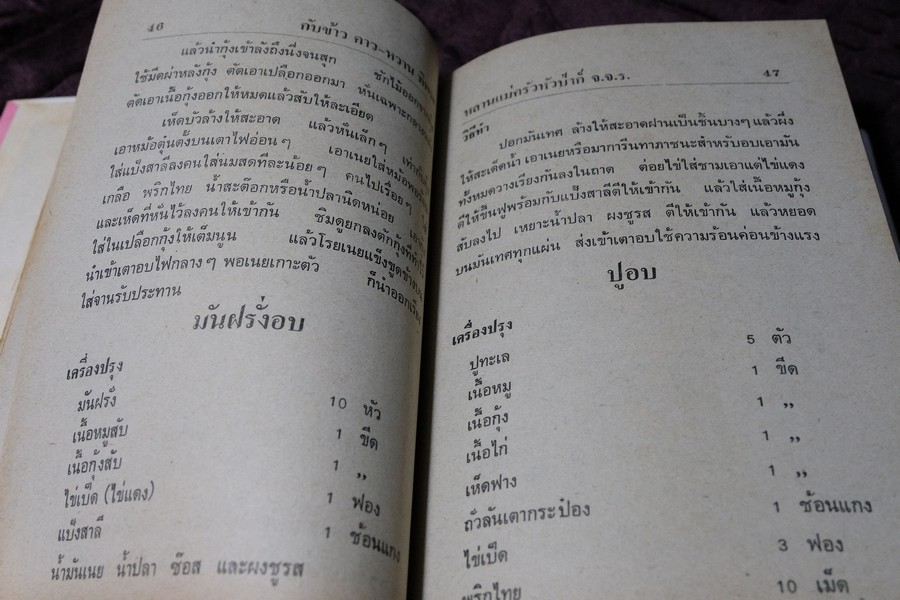 46
กับข้าว คาว-หวาน
แล้วนำกุ้งเข้าลังถึงนึ่งจนสุก ชักไม้ออก
ใช้มีดผ่าหลังกุ้ง ตัดเอาเปลือกออกมา หั่นเฉพาะ
ตัดเอาเนื้อกุ้งออกให้หมดแล้วสับให้ละเอียด
เห็ดบัวล้างให้สะอาด แล้วหั่นเล็ก ๆ
เอาหม้อตุ๋นตั้งบนเตาไฟอ่อน ๆ เอาเนยใส่หม้อ
ใส่แป้งสาลีลงคนใส่นมสดทีละน้อย ๆ คนไปเรื่อย ๆ
เกลือ พริกไทย น้ำสะต๊อกหรือน้ำปลานิดหน่อย
และเห็ดที่หั่นไว้ลงคนให้เข้ากัน ชิมดูยกลงตักกุ้งที่
ใส่ในเปลือกกุ้งให้เต็มนูน แล้วโรยเนยแข็งขูด
นำเข้าเตาอบไฟกลาง ๆ พอเนยเกาะตัว ก็นำออก
ใส่จานรับประทาน
มันฝรั่งอบ
เครื่องปรุง
มันฝรั่ง 10 หัว
เนื้อหมูสับ 1 ขีด
เนื้อกุ้งสับ 1 ,,
ไข่เป็ด (ไข่แดง) 1 ฟอง
แป้งสาลี 1 ช้อนแกง
น้ำมันเนย น้ำปลา ซ๊อส และผงชูรส
หลานแม่ครัวหัวป่าก์ จ.จ.ร. 47
วิธีทำ
ปอกมันเทศ ล้างให้สะอาดฝานเป็นชิ้นบางๆ แล้วผึ่ง
ให้สะเด็ดน้ำ เอาเนยหรือมาการีนทาภาชนะสำหรับอบเอามัน
ทั้งหมดวางเรียงกันลงในถาด ต่อยไข่ใส่ชามเอาแต่ไข่แดง
ตีให้ขึ้นฟูพร้อมกับแป้งสาลีตีให้เข้ากัน แล้วใส่เนื้อหมูกุ้ง
สับลงไป เหยาะน้ำปลา ผงชูรส ตีให้เข้ากัน แล้วหยอด
บนมันเทศทุกแผ่น ส่งเข้าเตาอบใช้ความร้อนค่อนข้างแรง
ปูอบ
เครื่องปรุง
ปูทะเล 5 ตัว
เนื้อหมู 1 ขีด
เนื้อกุ้ง 1 ,,
เนื้อไก่ 1 ,,
เห็ดฟาง 1 ,,
ถั่วลันเตากระป๋อง 1 ช้อนแกง
ไข่เป็ด 3 ฟอง
พริกไทย 10 เม็ด